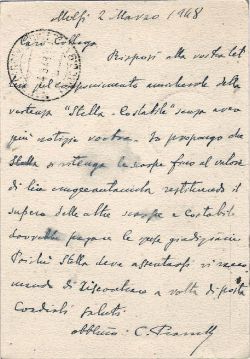 Melfi 2 Marzo 1948
Caro Collega
Risposi alla vostra let
pel componimento amichevole della
vertenza "Stella - Costabile" senza aver
più notizie vostre. Io propongo che
Stella si ritenga le scarpe fino al valore
di lire cinquantamila restituendo il
supero delle altre scarpe a Costabile
dovrebbe pagare le spese giudiziarie
Poiché Stella deve assentarsi vi racco
mando di riscontrare a volta di posta
Cordiali saluti
C.